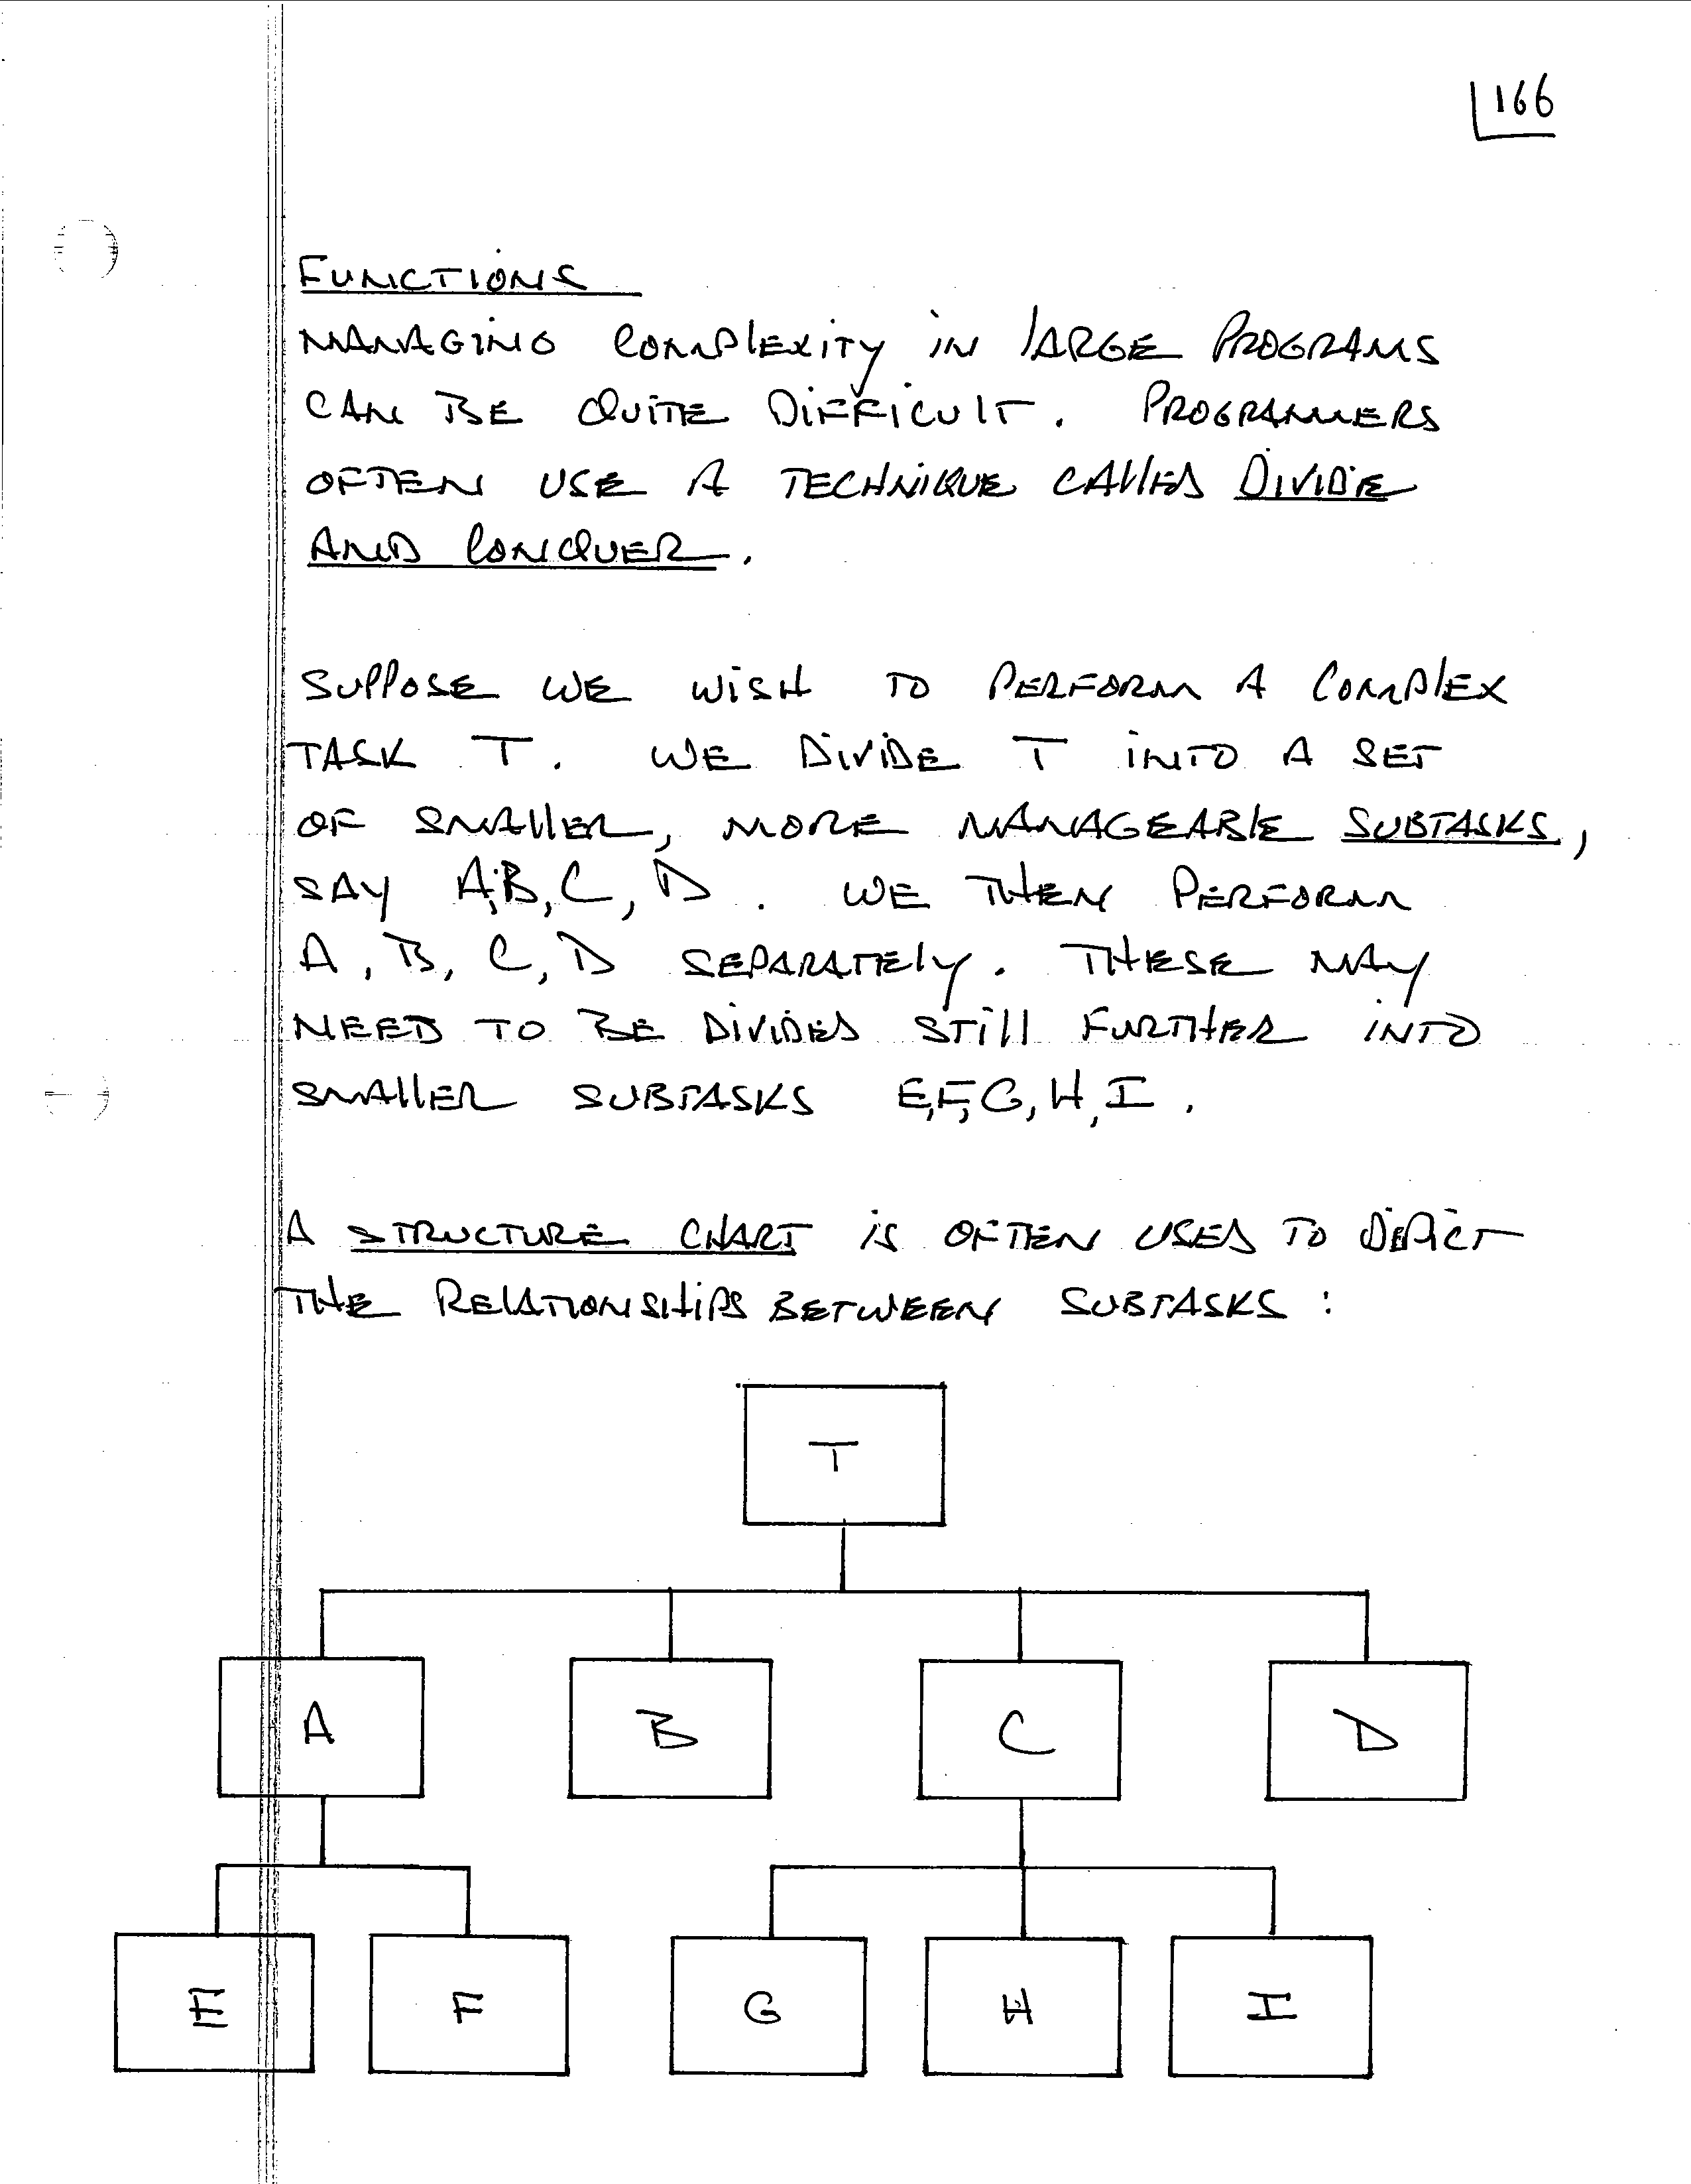 166
FUNCTIONS
MANAGING COMPLEXITY IN LARGE PROGRAMS
CAN BE QUITE DIFFICULT. PROGRAMMERS
OFTEN USE A TECHNIQUE CALLED DIVIDE
AND CONQUER.
SUPPOSE WE WISH TO PERFORM A COMPLEX
TASK T. WE DIVIDE T INTO A SET
OF SMALLER, MORE MANAGEABLE SUBTASKS,
SAY A,B,C,D. WE THEN PERFORM
A, B, C, D SEPARATELY. THESE MAY
NEED TO BE DIVIDED STILL FURTHER INTO
SMALLER SUBTASKS E,F,G,H,I.
A STRUCTURE CHART IS OFTEN USED TO DEPICT
THE RELATIONSHIPS BETWEEN SUBTASKS:
T
A B C D
E F G H I